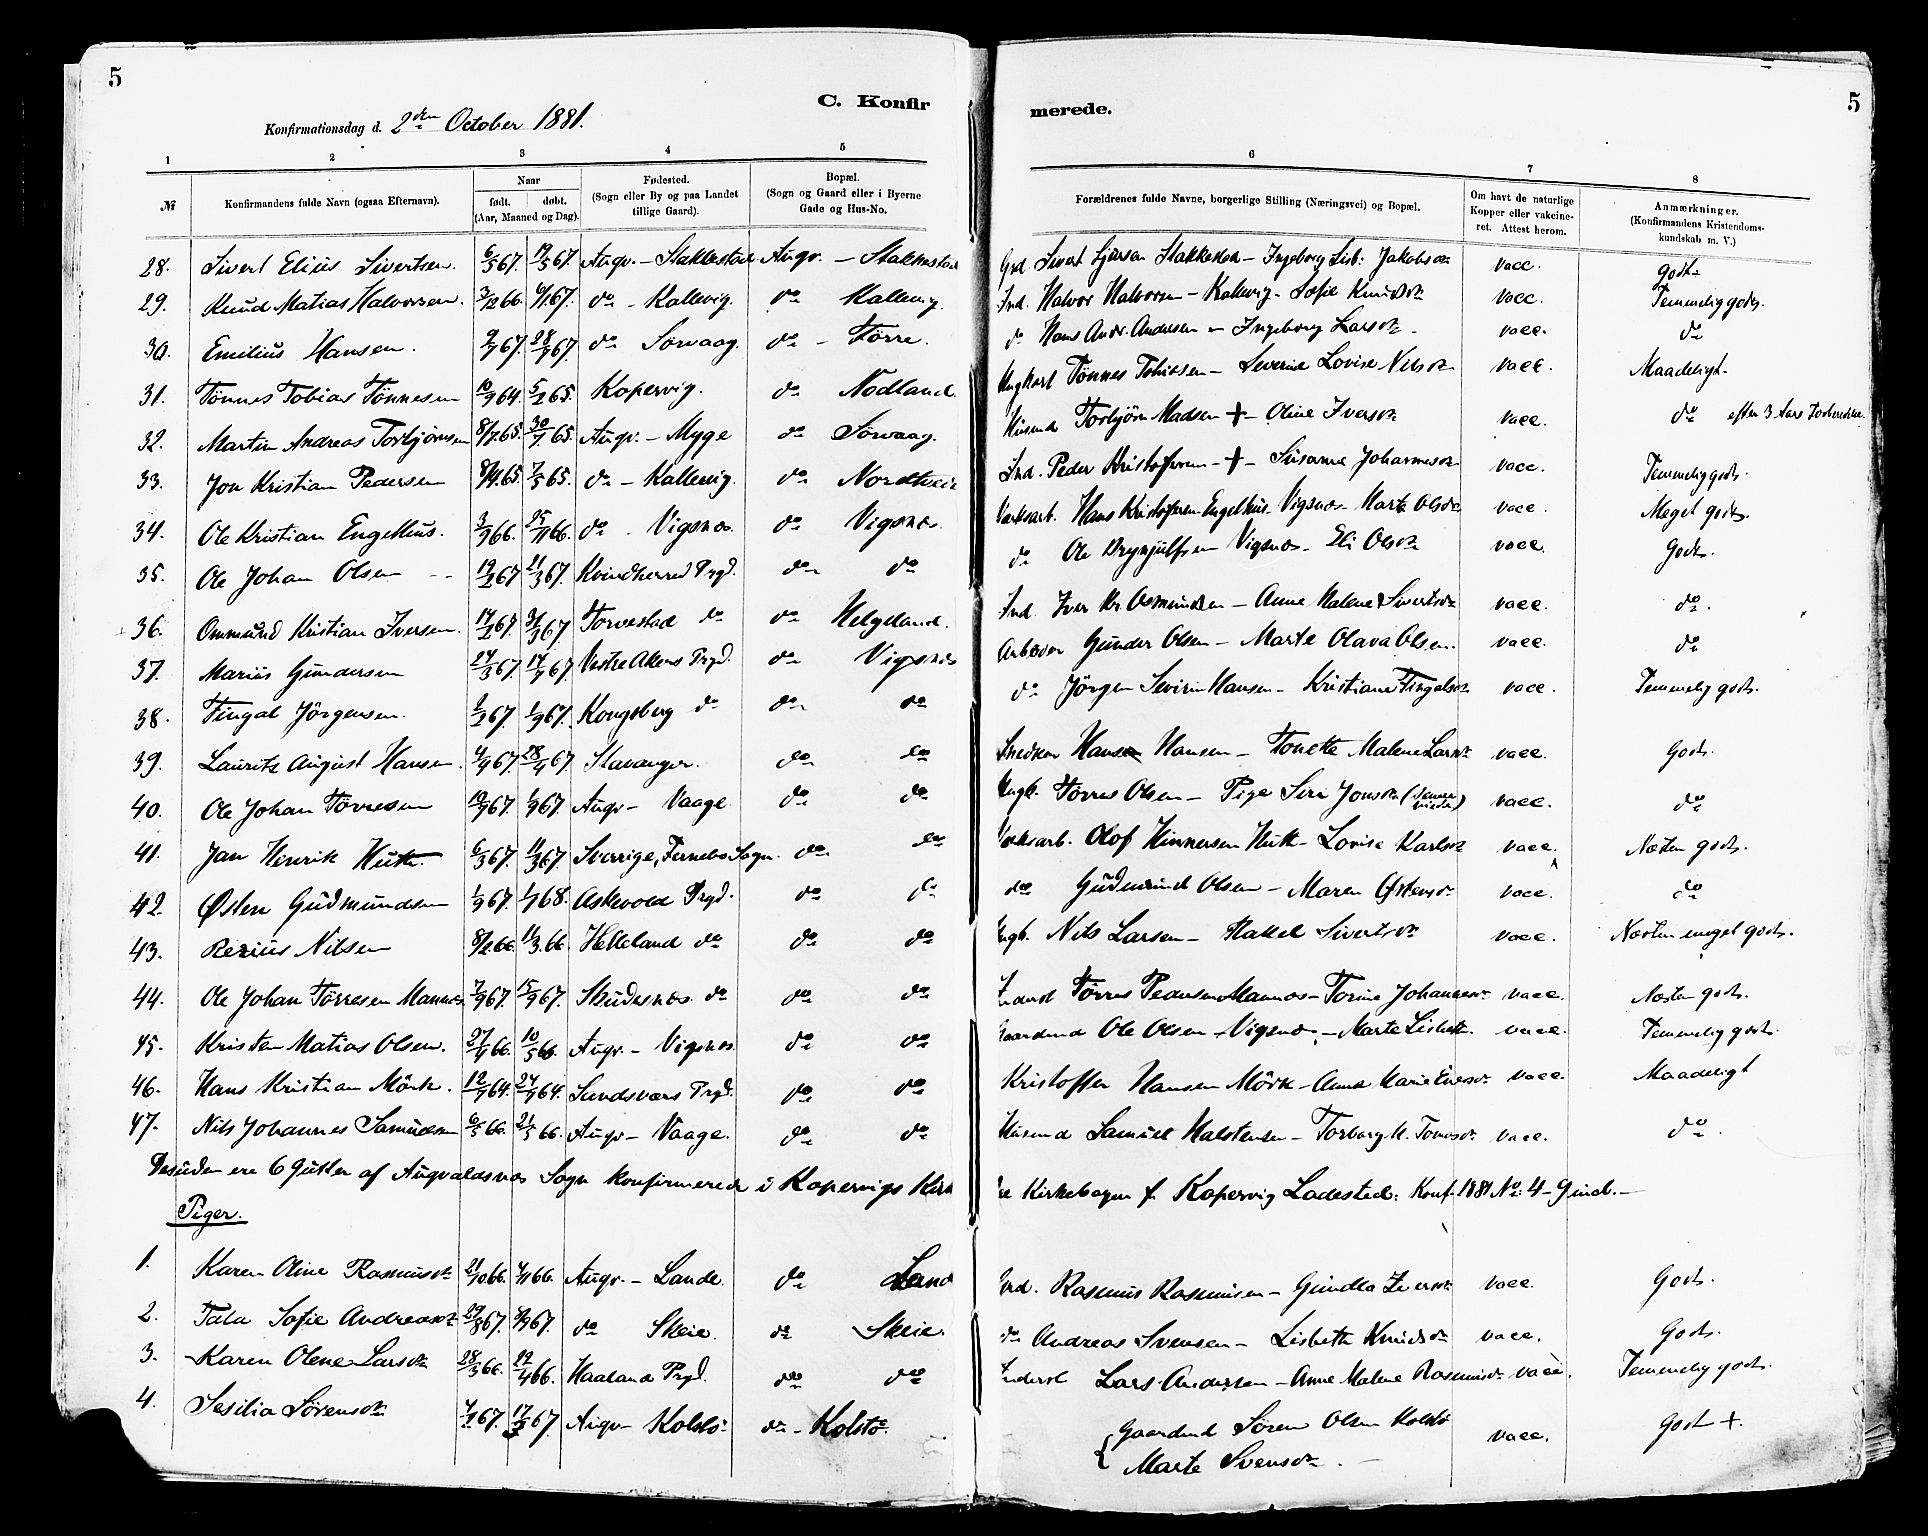 5
5
C. Konfir merede.
Konfirmationsdag d. 2den October 1881.
1 2 3 4 5 6 7 8
№ Konfirmandens fulde Navn (ogsaa Efternavn). Naar født. døbt. (Aar, Maaned og Dag). Fødested. (Sogn eller By og paa Landet tillige Gaard). Bopæl. (Sogn og Gaard eller i Byerne Gade og Hus-No. Forældrenes fulde Navne, borgerlige Stilling (Næringsvei) og Bopæl. Om havt de naturlige Kopper eller vakcineret. Attest herom. Anmærkninger. (Konfirmandens Kristendomskundskab m. V.)
28. Sivert Elius Sivertsen. 6/5 67. 19/5 67. Augv. - Stakkestad Augv. - Stakkestad Grd. Sivert Sjursen Stakkestad - Ingeborg Lisb. Jakobsdr vacc. godt.
29. Knud Matias Halvorsen. 3/12 66. 6/1 67. do - Kallevig. do Kallevig. Ind. Halvor Halvorsen - Kallevig - Sofie Knudsdr vacc. Temmelig godt.
30. Emilius Hansen. 9/7 67. 28/7 67. do Sørvaag. do - Tørre. do Hans Andr. Andersen - Ingeborg Larsdr. vacc. do
31. Tønnes Tobias Tønnesen 10/9 64. 5/2 65. Kopervig. do Nodland Ungkarl Tønnes Tobiasen - Severine Lovise Nilsdr vacc. Maadeligt.
32. Martin Andreas Torbjørnsen 8/7 65. 30/7 65. Augv. - Myge do Sørvaag. Husmd Torbjørn Madsen + - Oline Iversdr vacc. do efter 3 Aars Forberedelse.
33. Jon Kristian Pedersen 8/4 65. 7/5 65. do - Kallevig. do Nordtveit Ind. Peder Kristoffersen - + - Susanne Johannesdr vacc. Temmelig godt.
34. Ole Kristian Engelhus. 3/9 66. 25/11 66. do. Vigsnes. do Vigsnes. Værksarb. Hans Kristoffersen Engelhus Vigsnes - Marte Olsdr vacc. Meget godt.
35. Ole Johan Olsen 19/2 67 21/3 67. Kvindherred Prgd. do do do Ole Brynjulfsen Vigsnes - Eli Olsdr vacc. Godt.
36. Ommund Kristian Iversen. 17/2 67. 31/3 67 Torvestad do do Helgeland. Ind. Iver Kr. Osmundsen - Anne Malene Sivertsdr vacc. do.
37. Marius Gundersen 24/3 67. 14/7 67 Vestre Akers Prgd. do Vigsnes Arbeider Gunder Olsen - Marte Olava Olsen. vacc. do
38. Fingal Jörgensen. 2/3 67. 1/9 67. Kongsberg do do do do Jörgen Severin Hansen - Kristiane Fingalsdr vacc. Temmelig godt.
39. Lauritz August Hansen. 4/4 67. 28/4 67 Stavanger. do do Snedker Hans Hansen - Tonette Malene Larsdr vacc. Godt.
40. Ole Johan Tørresen 19/7 67. 1/9 67. Augv - Vaage. do do Ungk. Tørres Olsen - Pige Siri Jonsdr vacc. do
41. Jan Henrik Huth. 6/3 67. 11/3 67. Sverrige, Fernebo Sogn. do do Værksarb. Olof Hinnersen Huth - Lovise Karlsdr vacc. Næsten godt.
42. Østen Gudmundsen 1/9 67. 1/1 68. Askevold Prgd. do do do Gudmund Olsen - Maren Østensdr vacc. do
43. Rezius Nilsen 8/2 66. 11/3. 66. Helleland do do do Ungk. Nils Larsen - Rakel Sivertsdr vacc. Næsten meget godt.
44. Ole Johan Tørresen Mannes 7/9 67. 15/9 67. Skudesnes. do do do Tørres Pedersen Mannes - Torine Johannesdr vacc. Næsten godt.
45. Kristen Matias Olsen. 27/4 66. 10/5 66. Augv. - Vigsnes. do do Gaardmd Ole Olsen Vigsnes - Marte Lisbeth. vacc. Temmelig godt.
46. Hans Kristian Mörk. 12/7 64. 24/7 64. Sandsvers Prgd. do do Kristoffer Hansen Mörk - Anne Marie Eversdr vacc. Maadeligt
47. Nils Johannes Samuelsen 6/5 66. 21/5 66. Augv - Vaage. do do Husmd Samuel Halstensen - Torborg M. Tomasdr vacc. do.
Desuden ere 6 Gutter af Augvaldsnes Sogn konfirmerede i Kopervigs Kirke Kirkebogen f. Kopervig Ladested: Konf. 1881 No: 4 - 9 incl. -
Piger.
1. Karen Oline Rasmusdr 21/10 66. 4/11 66. Augv. - Lande. do Land Ind. Rasmus Rasmussen - Gundla Iversdr vacc. Godt.
2. Tala Sofie Andreasdr 29/8 67. 8/9 67. do Skeie. do Skeie. do Andreas Svensen - Lisbeth Knudsdr vacc. Godt.
3. Karen Olene Larsdr 28/3 66. 22/4 66. Haaland Prgd. do do Inderst Lars Andersen - Anne Malene Rasmusdr vacc. Temmelig godt.
4. Sesilia Sörensdr 4/2 67. 17/2 67. Augv - Kolstö do - Kolstö. Gaardmd Sören Olsen Kolstö Marte Svensdr. - vacc. Godt +.